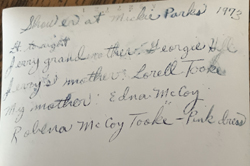 Shower at Mickie Parks 1973
St. to right
Jerry grandmother: Georgie Hill
Jerry's mother: Lorell Tooke
My mother: Edna McCoy
Robena McCoy Tooke - Pink dress